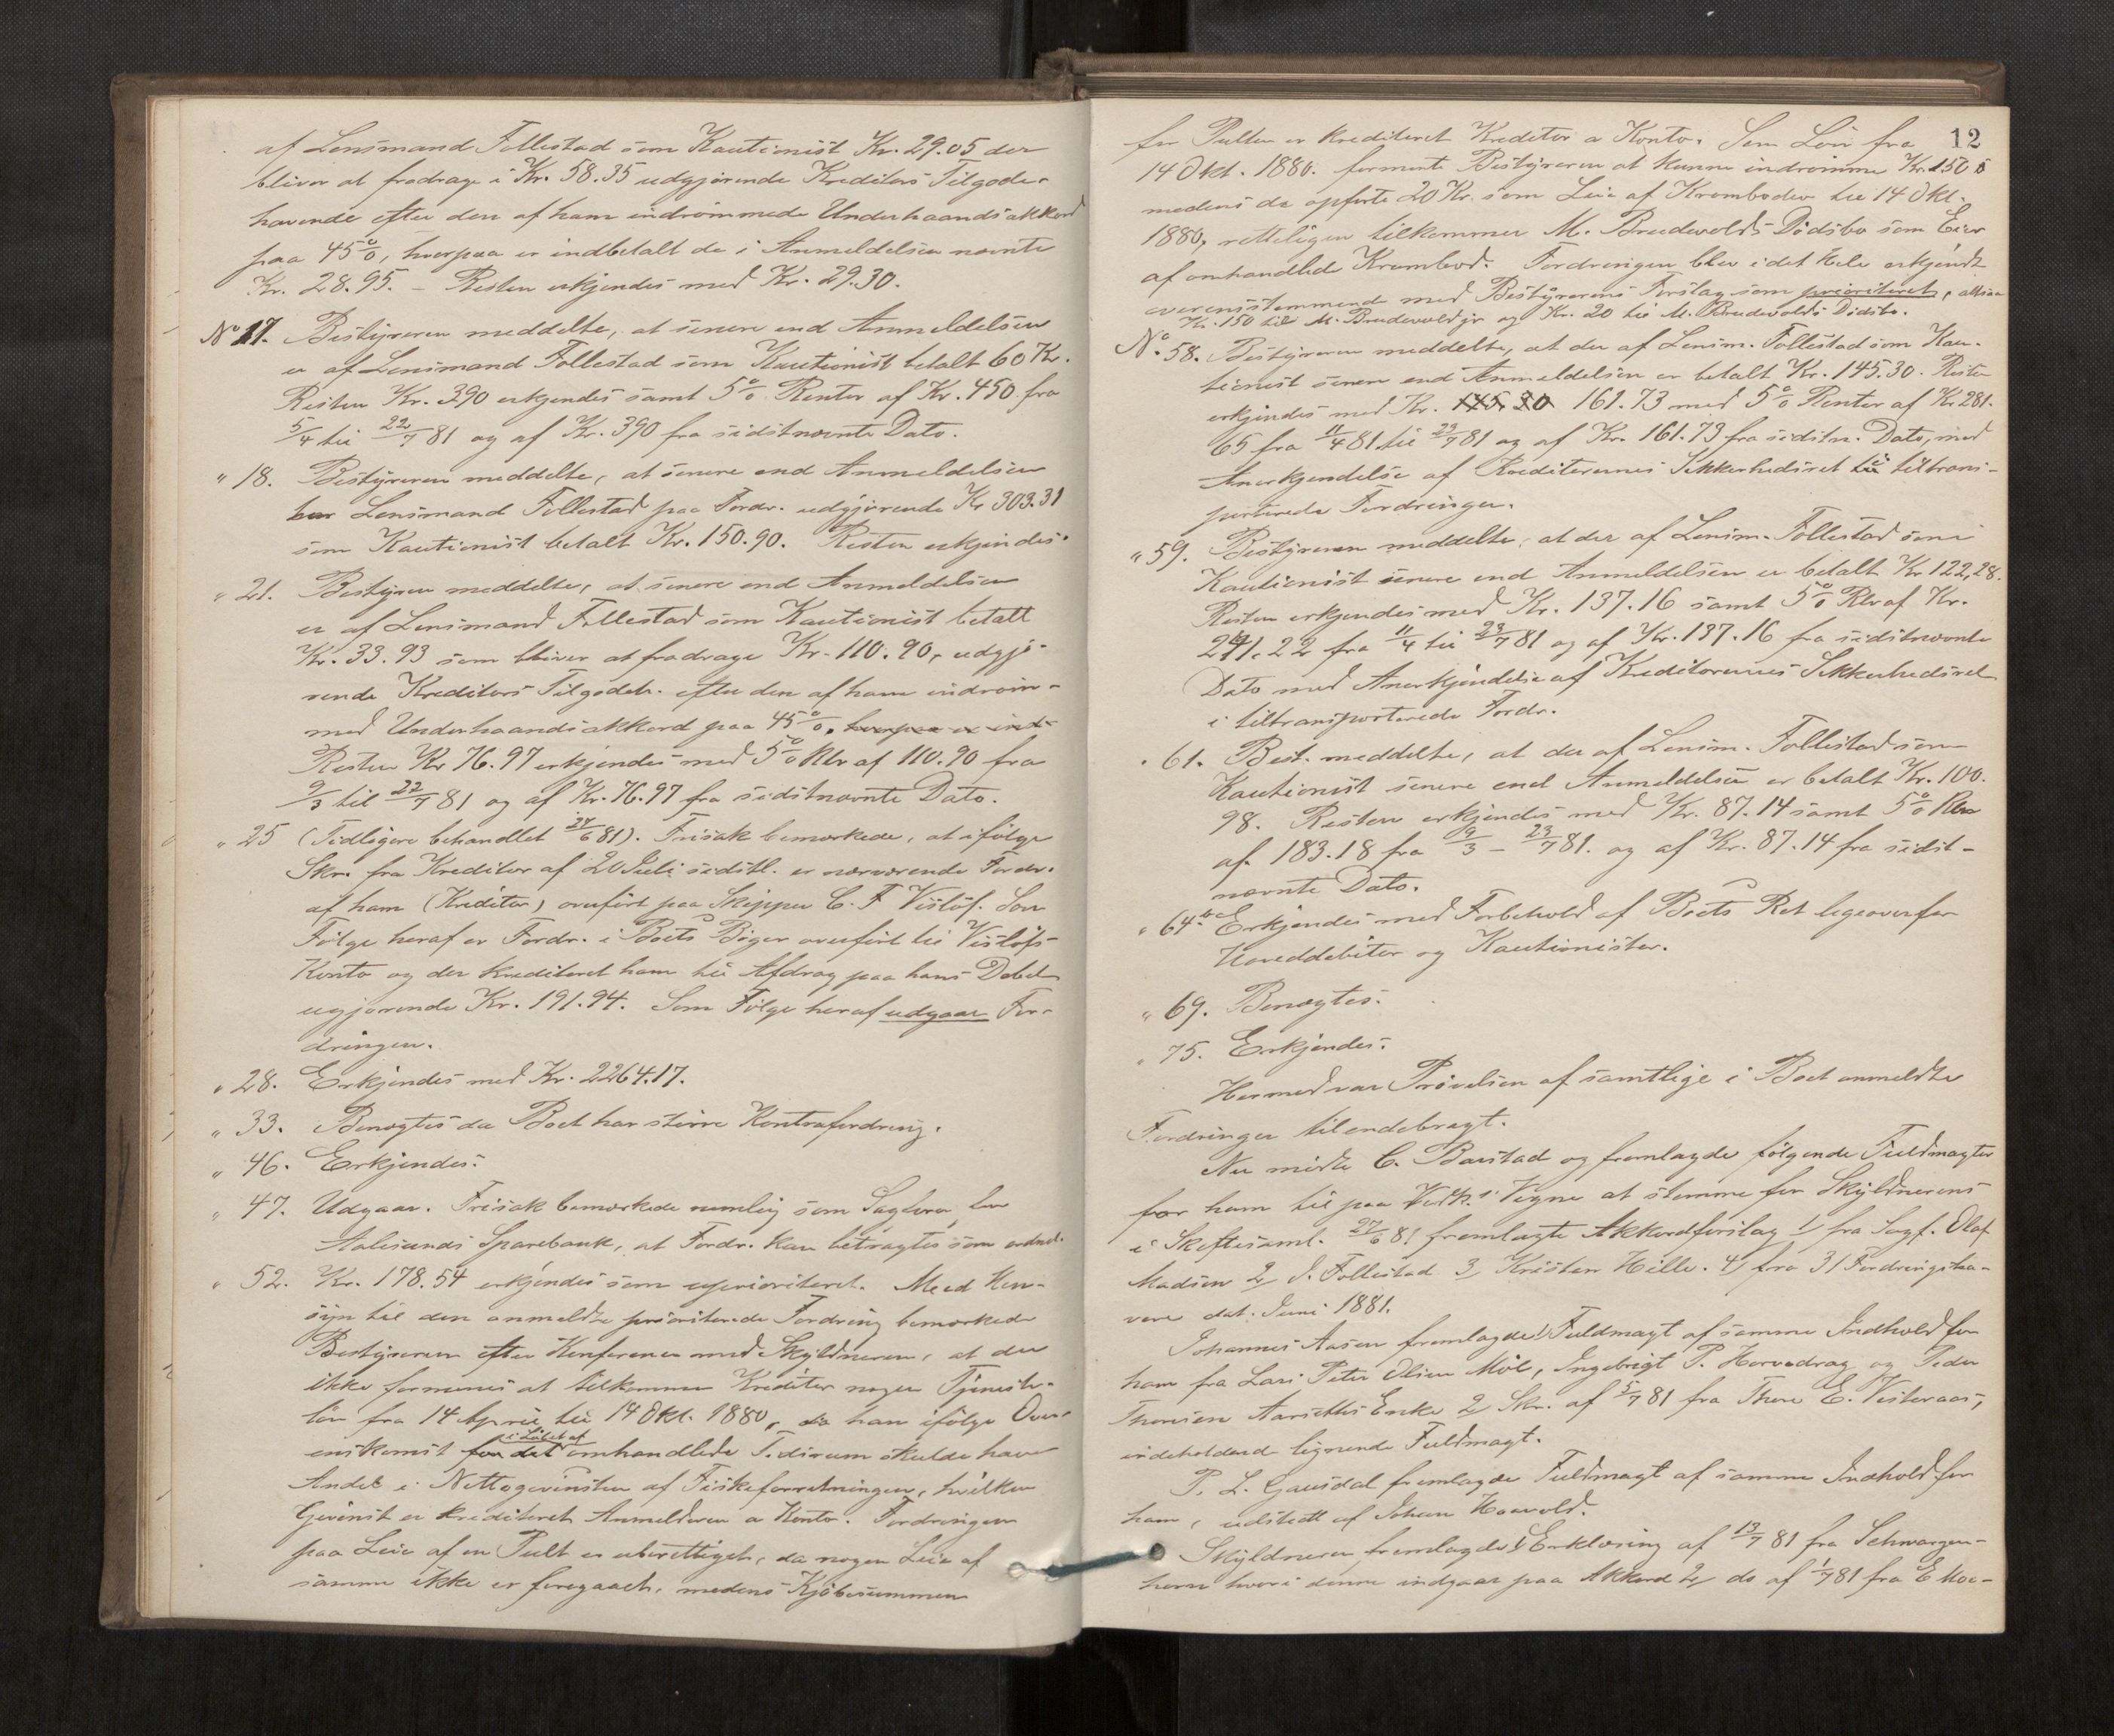 af Lensmand Follestad som Kautionist Kr. 29.05 der
bliver at fradrage i Kr. 58.35 udgjørende Kreditors Tilgode-
havende efter den af ham indrømmede Underhaandsakkord
paa 45 %, hvorpaa er indbetalt de i Anmeldelsen nævnte
Kr. 28.95. – Resten erkjendes med Kr. 29.30.
No 17. Bestyreren meddelte, at senere end Anmeldelsen
er af Lensmand Follestad som Kautionist betalt 60 Kr.
Resten Kr. 390 erkjendes samt 5 % Renter af Kr. 450 fra
5/4 til 22/7 81 og af Kr. 390 fra sidstnævnte Dato.
" 18. Bestyreren meddelte, at senere end Anmeldelsen
har Lensmand Follestad paa Fordr. udgjørende Kr 303.31
som Kautionist betalt Kr. 150.90. Resten erkjendes.
" 21. Bestyren meddelte, at senere end Anmeldelsen
er af Lensmand Follestad som Kautionist betalt
Kr. 33.93 som bliver at fradrage Kr. 110.90, udgjø-
rende Kreditors Tilgodeh. efter den af ham indrøm-
med Underhaandsakkord paa 45 %, hvorpaa er ind-
Resten Kr 76.97 erkjendes med 5 % Rtr af 110.90 fra
9/3 til 22/7 81 og af Kr. 76.97 fra sidstnævnte Dato.
" 25 (Tidligere behandlet 27/6 81). Frisak bemærkede, at ifølge
Skr. fra Kreditor af 20 Juli sidstl. er nærværende Fordr.
af ham (Kreditor) overført paa Skipper C. F Visløf. Som
Følge heraf er Fordr. i Boets Bøger overført til Visløfs
Konto og der krediteret ham til Afdrag paa hans Debet
ugjørende Kr. 191.94. Som Følge heraf udgaar For-
dringen.
" 28. Erkjendes med Kr. 2264.17.
" 33. Benægtes da Boet har større Kontrafordring.
" 46. Erkjendes.
" 47. Udgaar. Frisak bemærkede nemlig som Sagfører for
Aalesunds Sparebank, at Fordr. kan betragtes som ordnet.
" 52. Kr. 178.54 erkjendes som uprioriteret. Med Hen-
syn til den anmeldte prioriterede Fordring bemærkede
Bestyreren efter Konference med Skyldneren, at der
ikke formenes at tilkomme Kreditor nogen Tjeneste-
løn fra 14 April til 14 Okt. 1880, da han ifølge Over-
enskomst for det i Løbet af omhandlede Tidsrum skulde have
Andel i Nettogevinsten af Fiskeforretningen, hvilken
Gevinst er krediteret Anmelderen a Konto. Fordringen
paa Leie af en Pult er uberettiget, da nogen Leie af
samme ikke er foregaaet, medens Kjøbesummen
12
for Pulten er krediteret Kreditor a Konto. Som Løn fra
14 Okt. 1880. formente Bestyreren at kunne indrømme Kr. 150
medens de opførte 20 Kr. som Leie af Kramboden til 14 Okt.
1880, retteligen tilkommer M. Brudevolds Dødsbo som Eier
af omhandlede Krambod. Fordringen blev i det Hele erkjendt
overensstemmende med Bestyrerens Forslag som prioriteret, altsaa
Kr. 150 til M. Brudevold jr og Kr. 20 til M. Brudevolds Dødsbo.
No. 58. Bestyreren meddelte, at der af Lensm. Follestad som Kau-
tionist senere end Anmeldelsen er betalt Kr. 145.30. Resten
erkjendes med Kr. 145.30 161.73 med 5 % Renter af Kr 281.
65 fra 11/4 81 til 23/7 81 og af Kr. 161.73 fra sidstn. Dato, med
Anerkjendelse af Kreditorernes Sikkerhedsret til tiltrans-
porterede Fordringer.
" 59. Bestyreren meddelte, at der af Lensm. Follestad som
Kautionist senere end Anmeldelsen er betalt Kr 122,28.
Resten erkjendes med Kr. 137.16 samt 5 % Rtr af Kr.
241.22 fra 11/4 til 23/7 81 og af Kr. 137.16 fra sidstnævnte
Dato med Anerkjendelse af Kreditorernes Sikkerhedsret
i tiltransporterede Fordr.
" 61. Best. meddelte, at der af Lensm. Follestad som
Kautionist senere end Anmeldelsen er betalt Kr. 100.
98. Resten erkjendes med Kr. 87.14 samt 5 % Rtr
af 183.18 fra 9/3 – 23/7 81. og af Kr. 87.14 fra sidst-
nævnte Dato.
" 64 Erkjendes med Forbehold af Boets Ret ligeoverfor
Hoveddebitor og Kautionister.
" 69. Benægtes.
" 75. Erkjendes.
Hermed var Prøvelsen af samtlige i Boet anmeldte
Fordringer tilendebragt.
Nu mødte C. Barstad og fremlagde følgende Fuldmagter
for ham til paa Vegne at stemme for Skyldnerens
i Skiftesaml. 27/6 81 fremlagte Akkordforslag 1/ fra Sagf. Olaf
Madsen 2/ J. Follestad 3/ Kristen Hille. 4/ fra 31 Fordringsha-
vere dat. Juni 1881.
Johannes Aasen fremlagde 1/ Fuldmagt af samme Indhold for
ham fra Lars Peter Olsen Moe, Ingebrigt P. Horvedrag og Peder
Thoresen Aarseths Enke 2/ Skr. af 5/7 81 fra Thore E. Vesteraas,
indeholdende lignende Fuldmagt.
P. L. Gausdal fremlagde Fuldmagt af samme Indhold for
ham, udstedt af Johan Haavold.
Skyldneren fremlagde 1/ Erklæring af 13/7 81 fra Schwargen-
horn hvori denne indgaar paa Akkord 2/ do af 1/7 81 fra E Moe-